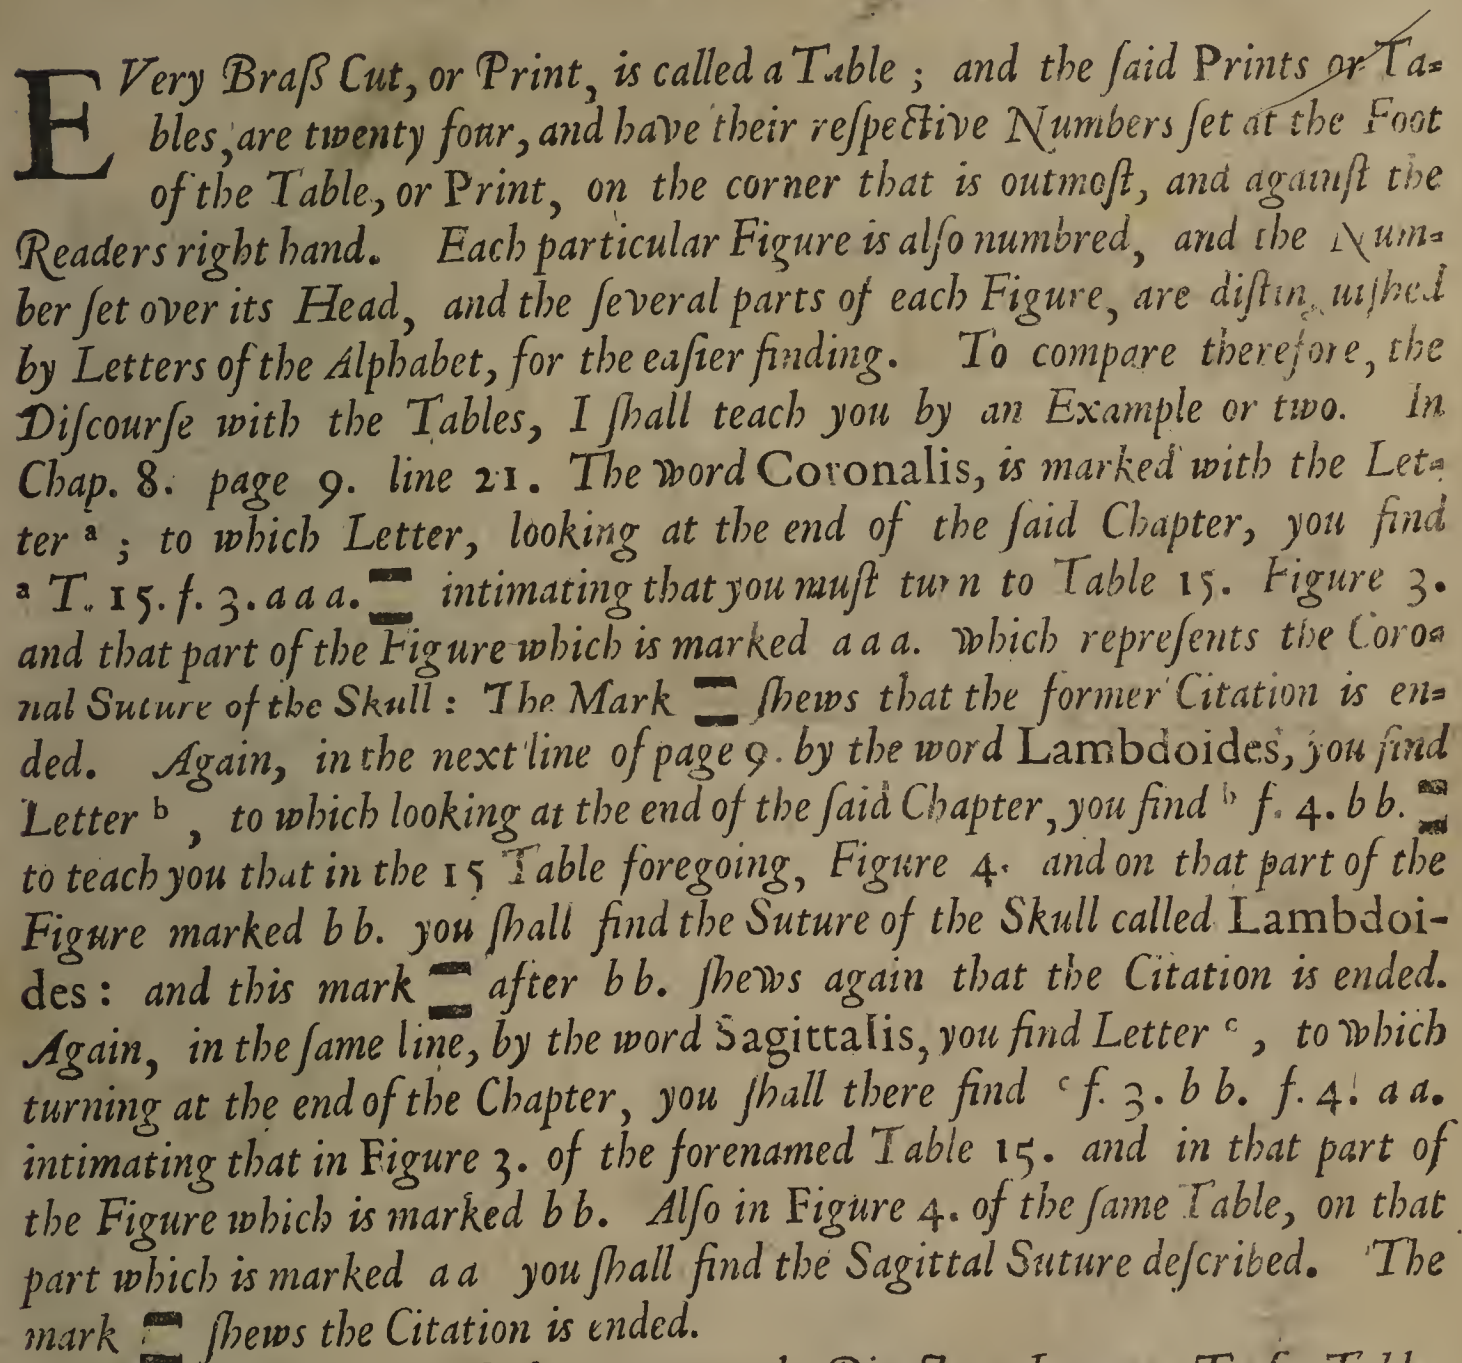 EVery Braſs Cut, or Print, is called a Table ; and the ſaid Prints or Ta=
bles, are twenty four, and have their reſpective Numbers ſet at the Foot
of the Table, or Print, on the corner that is outmoſt, and againſt the
Readers right hand. Each particular Figure is alſo numbred, and the Num=
ber ſet over its Head, and the ſeveral parts of each Figure, are diſtinguiſhed
by Letters of the Alphabet, for the eaſier finding. To compare therefore, the
Diſcourſe with the Tables, I ſhall teach you by an Example or two. In
Chap. 8. page 9. line 21. The word Coronalis, is marked with the Let=
ter ª ; to which Letter, looking at the end of the ſaid Chapter, you find
ª T. 15. f. 3. a a a. 〓 intimating that you muſt turn to Table 15. Figure 3.
and that part of the Figure which is marked a a a. which repreſents the Coro=
nal Suture of the Skull : The Mark 〓 ſhews that the former Citation is en=
ded. Again, in the next line of page 9. by the word Lambdoides, you find
Letter ᵇ , to which looking at the end of the ſaid Chapter, you find ᵇ f. 4. b b. 〓
to teach you that in the 15 Table foregoing, Figure 4. and on that part of the
Figure marked b b. you ſhall find the Suture of the Skull called Lambdoi-
des : and this mark 〓 after b b. ſhews again that the Citation is ended.
Again, in the ſame line, by the word Sagittalis, you find Letter ᶜ , to which
turning at the end of the Chapter, you ſhall there find ᶜ f. 3. b b. f. 4. a a.
intimating that in Figure 3. of the forenamed Table 15. and in that part of
the Figure which is marked b b. Alſo in Figure 4. of the ſame Table, on that
part which is marked a a you ſhall find the Sagittal Suture deſcribed. The
mark 〓 ſhews the Citation is ended.